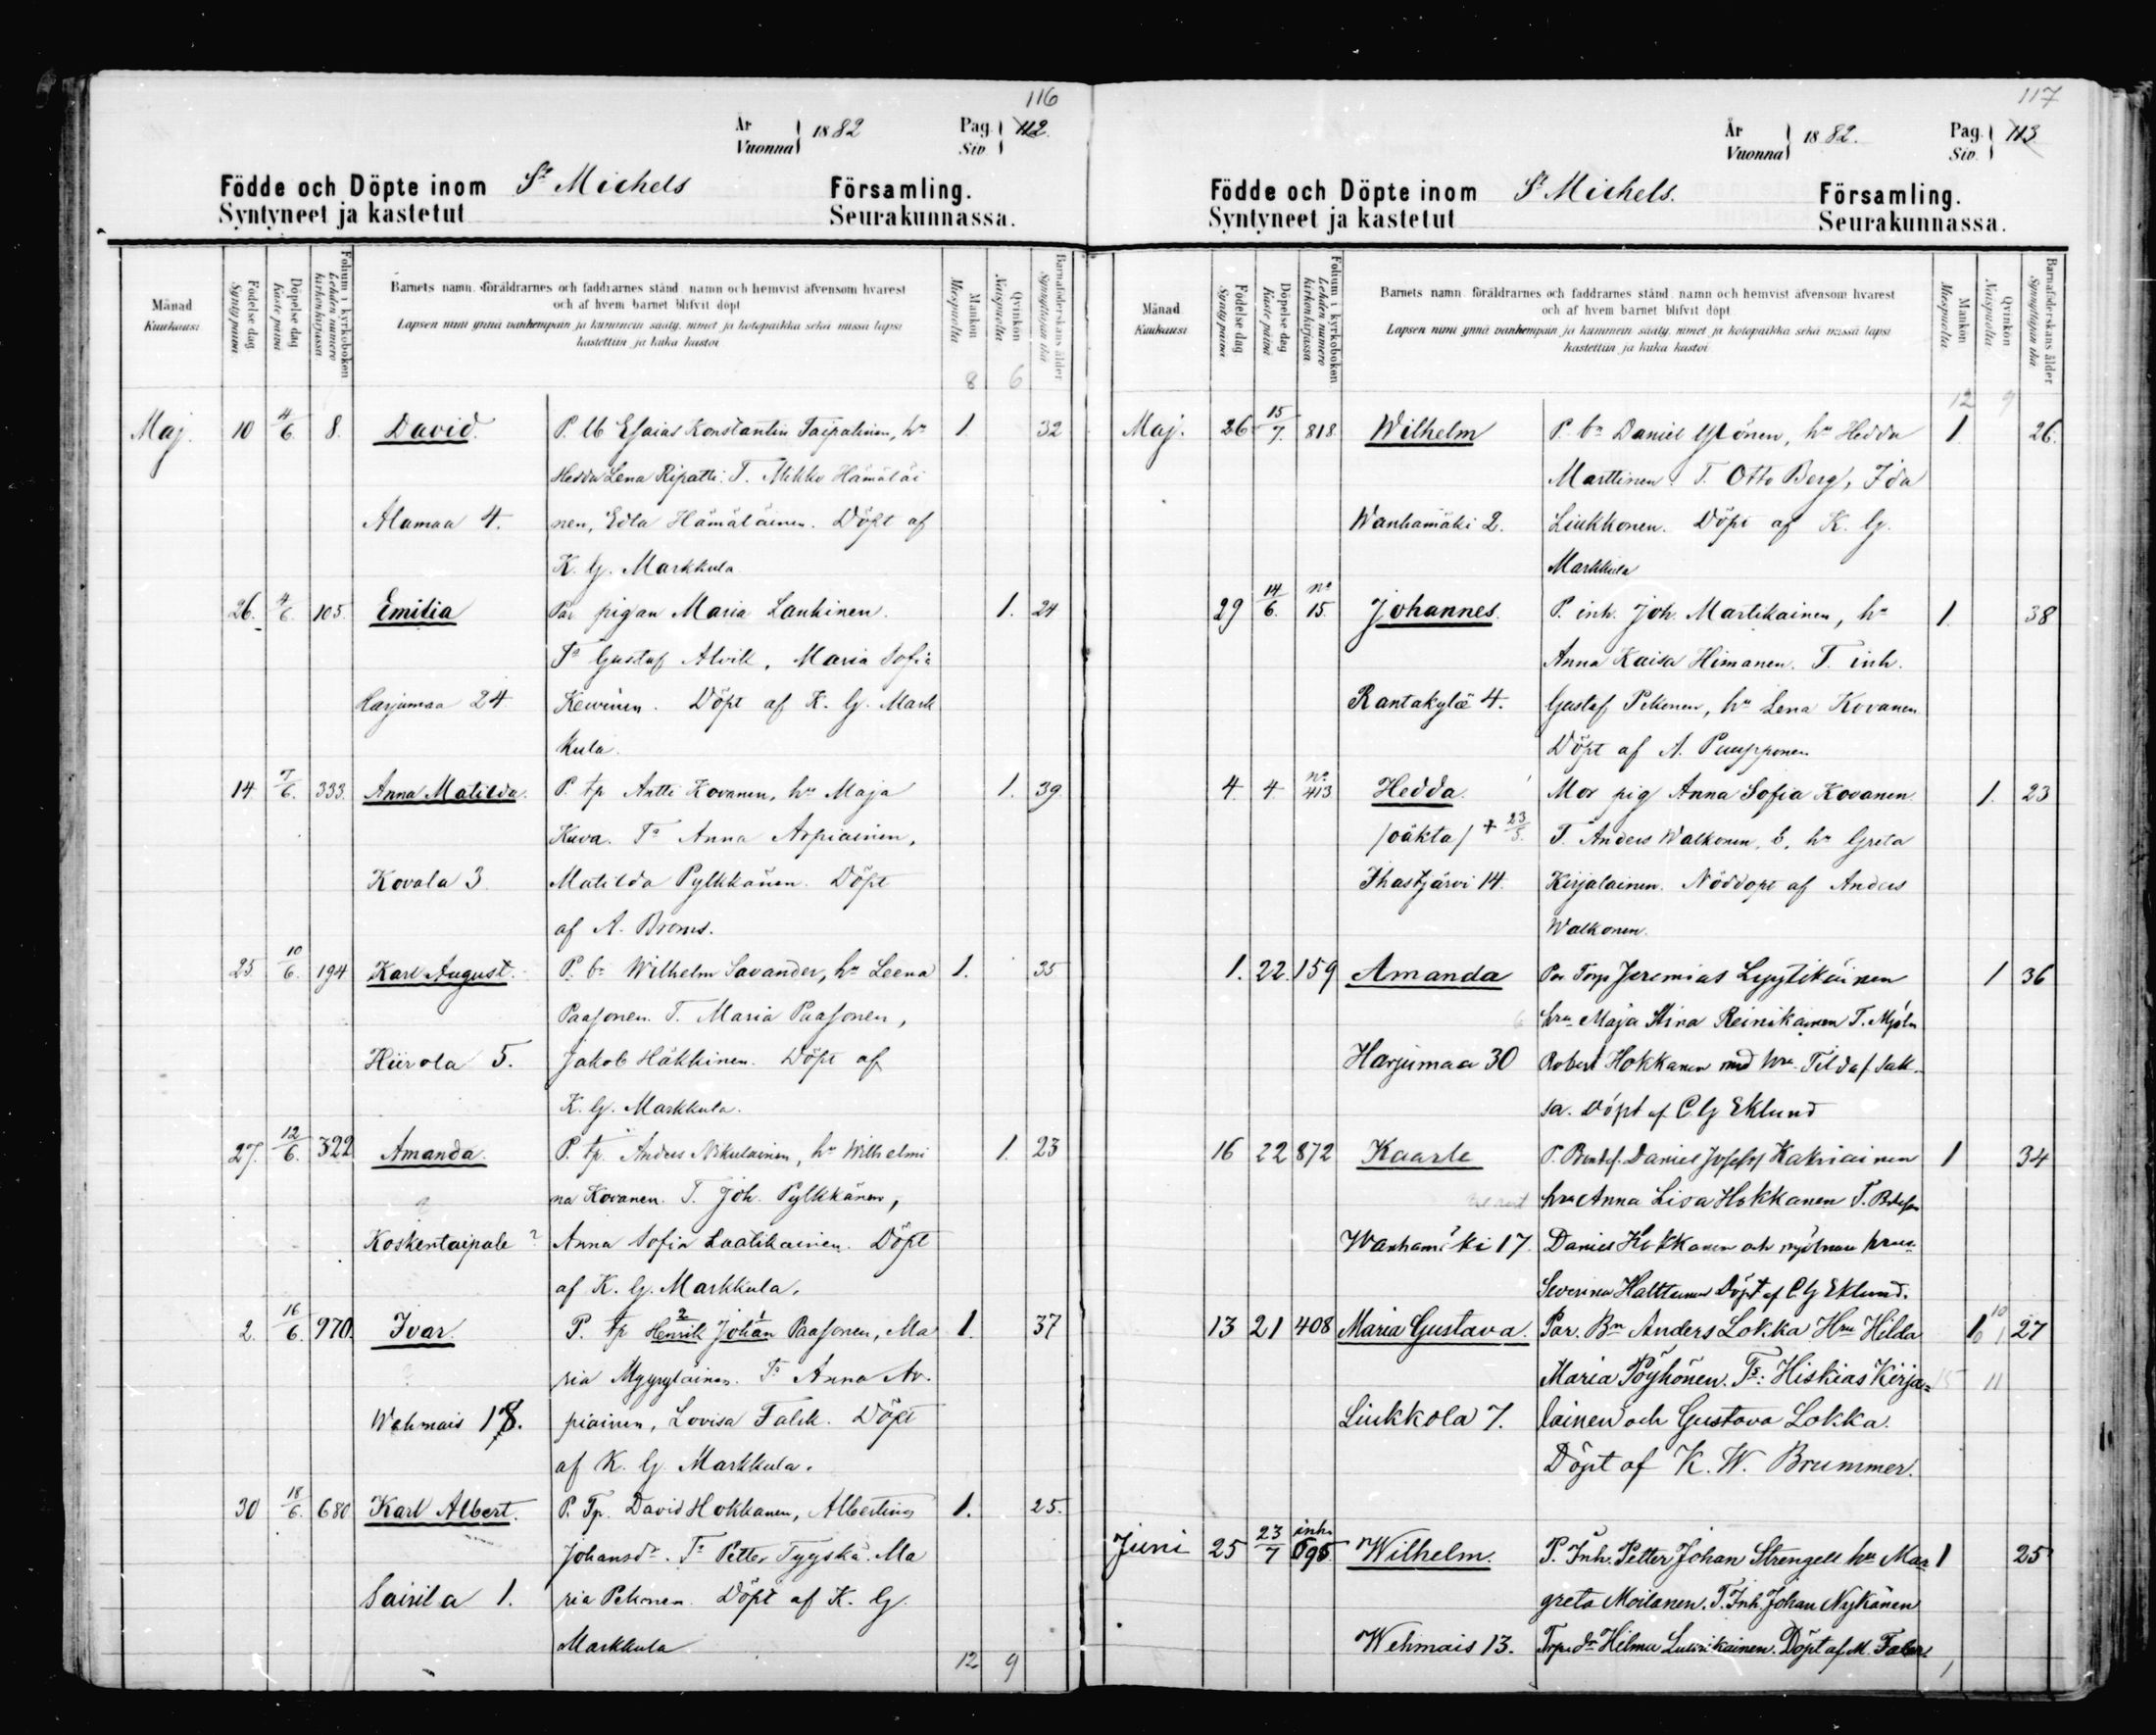 116
År Vuonna 1882 Pag. Siv. 112.
Födde och Döpte inom St Michels Församling.
Syntyneet ja kastetut Seurakunnassa.
Månad Kuukausi
Födelse dag Synty päivä
Döpelse dag Kaste päivä
Folium i kyrkoboken Lehden numero kirkonkirjassa
Barnets namn, föräldrarnes och faddrarnes stånd, namn och hemvist äfvensom hvarest
och af hvem barnet blifvit döpt
Lapsen nimi ynnä vanhempain ja kummein sääty, nimet ja kotopaikka sekä missä lapsi
kastettiin ja kuka kastoi
Mankön Miespuolta
Qvinkön Naispuolta
Barnaföderskans ålder Synnyttäjän ikä
8 6
Maj. 10 4/6. 8. David. P. Ub Esaias Konstantin Taipalinen, hu 1. 32
Hedda Lena Ripatti. T. Mikko Hämäläi
Alamaa 4. nen, Edla Hämäläinen. Döpt af
K. G. Markkula
26. 4/6. 105. Emilia Par pigan Maria Lauhinen. 1. 24
Ts Gustaf Alvik, Maria Sofia
Harjumaa 24. Kewinen. Döpt af K. G. Mark
kula.
14. 7/6. 333. Anna Matilda. P. tp Antti Kovanen, hu Maja 1. 39.
Kuva. Ts Anna Arpiainen,
Kovala 3 Matilda Pylkkänen. Döpt
af A. Broms.
25 10/6. 194 Karl August. P. bn Wilhelm Savander, hu Leena 1. 35
Paasonen. T. Maria Paasonen,
Hiirola 5. Jakob Häkkinen. Döpt af
K. G. Markkula.
27. 12/6. 322 Amanda. P. tp. Anders Nikulainen, hu Wilhelmi 1. 23
na Kovanen. T. Joh. Pylkkänen,
Koskentaipale ? Anna Sofia Laatikainen. Döpt
af K. G. Markkula.
2. 16/6. 970. Ivar. P. tp Henrik Johan Paasonen, Ma 1. 37
ria Myyryläinen. Ts Anna Ar-
Wehmais 18. piainen, Lovisa Falck. Döpt
af K. G. Markkula.
30 18/6. 680 Karl Albert. P. Tp. David Hokkanen, Albertina 1. 25.
Johansdr. Ts Petter Tyyskä. Ma
Sairila 1. ria Pekonen. Döpt af K. G.
Markkula
12 9
117
År Vuonna 1882. Pag. Siv. 113
Födde och Döpte inom St Michels. Församling.
Syntyneet ja kastetut Seurakunnassa.
Månad Kuukausi
Födelse dag Synty päivä
Döpelse dag Kaste päivä
Folium i kyrkoboken Lehden numero kirkonkirjassa
Barnets namn, föräldrarnes och faddrarnes stånd, namn och hemvist äfvensom hvarest
och af hvem barnet blifvit döpt.
Lapsen nimi ynnä vanhempain ja kummein sääty, nimet ja kotopaikka sekä missä lapsi
kastettiin ja kuka kastoi
Mankön Miespuolta
Qvinkön Naispuolta
Barnaföderskans ålder Synnyttäjän ikä
12 9
Maj. 26 15/7. 818. Wilhelm P. bn Daniel Ylönen, hu Hedda 1 26.
Marttinen. T. Otto Berg, Ida
Wanhamäki 2. Liukkonen. Döpt af K. G.
Markkula
29 14/6. no 15. Johannes. P. inh. Joh. Martikainen, hu 1. 38
Anna Kaisa Himanen. T. inh.
Rantakylä 4. Gustaf Pekonen, hu Lena Kovanen
Döpt af A. Puupponen.
4. 4 no 413 Hedda. Mor pig Anna Sofia Kovanen 1. 23
/oäkta/ + 23/5. T. Anders Walkonen, b. hu Greta
Ihastjärvi 14. Kirjalainen. Nöddöpt af Anders
Walkonen.
1. 22. 159 Amanda Par Torp Jeremias Lyytikäinen 1 36
hru Maja Stina Reinikainen T. Mjöln
Harjumaa 30 Robert Hokkanen med hru Tilda f. Sak-
sa. Döpt af C G Eklund
16 22 872 Kaarle P. Bondes. Daniel Josefs Kakriainen 1 34
hru Anna Lisa Hokkanen T. Bdeson
Wanhamäki 17. Daniel Hokkanen och mjölnare hrus.
Severina Halttunen Döpt af C G Eklund.
13 21 408 Maria Gustava. Par. Bn Anders Lokka Hru Hilda 1 27
Maria Pöyhönen. Ts: Hiskias Kirja= 15 11
Liukkola 7. lainen och Gustava Lokka.
Döpt af K. W. Brummer.
Juni 25 23/7 inh. 695. Wilhelm. P. Inh. Petter Johan Strengell hu Mar 1 25
greta Moilanen. T. Inh. Johan Nykänen
Wehmais 13. Torpdr Hilma Luukkainen. Döpt af M. Faler.